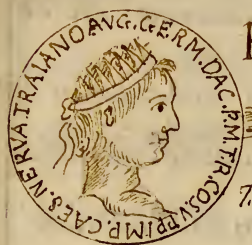 IMP.CAES.NERVA.TRAIANO AVG.GERM.DAC.P.M.T.R.COS.V.PP
7.